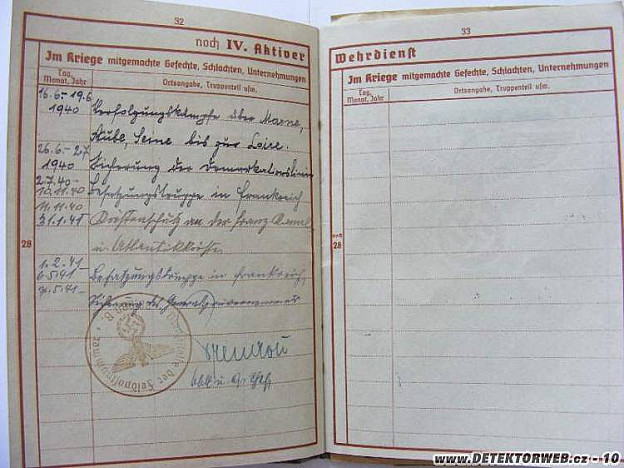 32
noch IV. Aktiver
Im Kriege mitgemachte Gefechte, Schlachten, Unternehmungen
Tag, Monat, Jahr
Ortsangabe, Truppenteil usw.
16.6.-19.6.
1940 Verfolgungskämpfe über Marne,
Aube, Seine bis zur Loire.
26.6.-2.7.
1940 Sicherung der Demarkationslinie
2.7.40-
10.11.40 Besatzungstruppe in Frankreich
11.11.40
31.1.41 Küstenschutz an der franz. Kanal
u. Atlantikküste
1.2.41
6.5.41 Besatzungstruppe in Frankreich,
7.5.41- Sicherung des
28
33
Wehrdienst
Im Kriege mitgemachte Gefechte, Schlachten, Unternehmungen
Tag, Monat, Jahr
Ortsangabe, Truppenteil usw.
noch
28
www.DETEKTORWEB.cz - 10